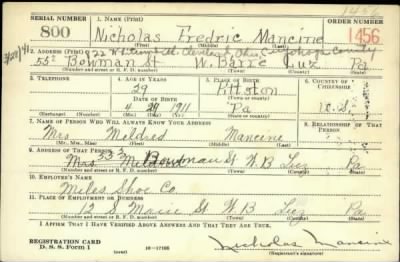 1456
SERIAL NUMBER 1. NAME (Print) ORDER NUMBER
800 Nicholas Fredric Mancine 1456
(First) (Middle) (Last)
2. ADDRESS (Print) Cleveland, Ohio, County
55 Bowman St W. Barre Luz Pa
(Number and street or R. F. D. number) (Town) (County) (State)
3. TELEPHONE 4. AGE IN YEARS 5. PLACE OF BIRTH 6. COUNTRY OF CITIZENSHIP
29 Pittston
DATE OF BIRTH (Town or county)
4 1911 Pa U.S.
(Exchange) (Number) (Mo.) (Day) (Yr.) (State or country)
7. NAME OF PERSON WHO WILL ALWAYS KNOW YOUR ADDRESS 8. RELATIONSHIP OF THAT PERSON
Mrs Mildred Mancine
(Mr., Mrs., Miss) (First) (Middle) (Last)
9. ADDRESS OF THAT PERSON
Bowman St W B Luz Pa
(Number and street or R. F. D. number) (Town) (County) (State)
10. EMPLOYER'S NAME
Miles Shoe Co.
11. PLACE OF EMPLOYMENT OR BUSINESS
12 S Main St W B Luz Pa
(Number and street or R. F. D. number) (Town) (County) (State)
I AFFIRM THAT I HAVE VERIFIED ABOVE ANSWERS AND THAT THEY ARE TRUE.
REGISTRATION CARD
D. S. S. Form 1 (over) 16—17105 Nicholas Mancine
(Registrant's signature)